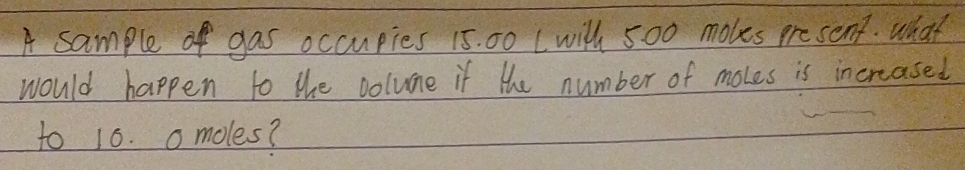 A sample of gas occupies 15.00 L with 500 moles present. What
would happen to the volume if the number of moles is increased
to 10. 0 moles?